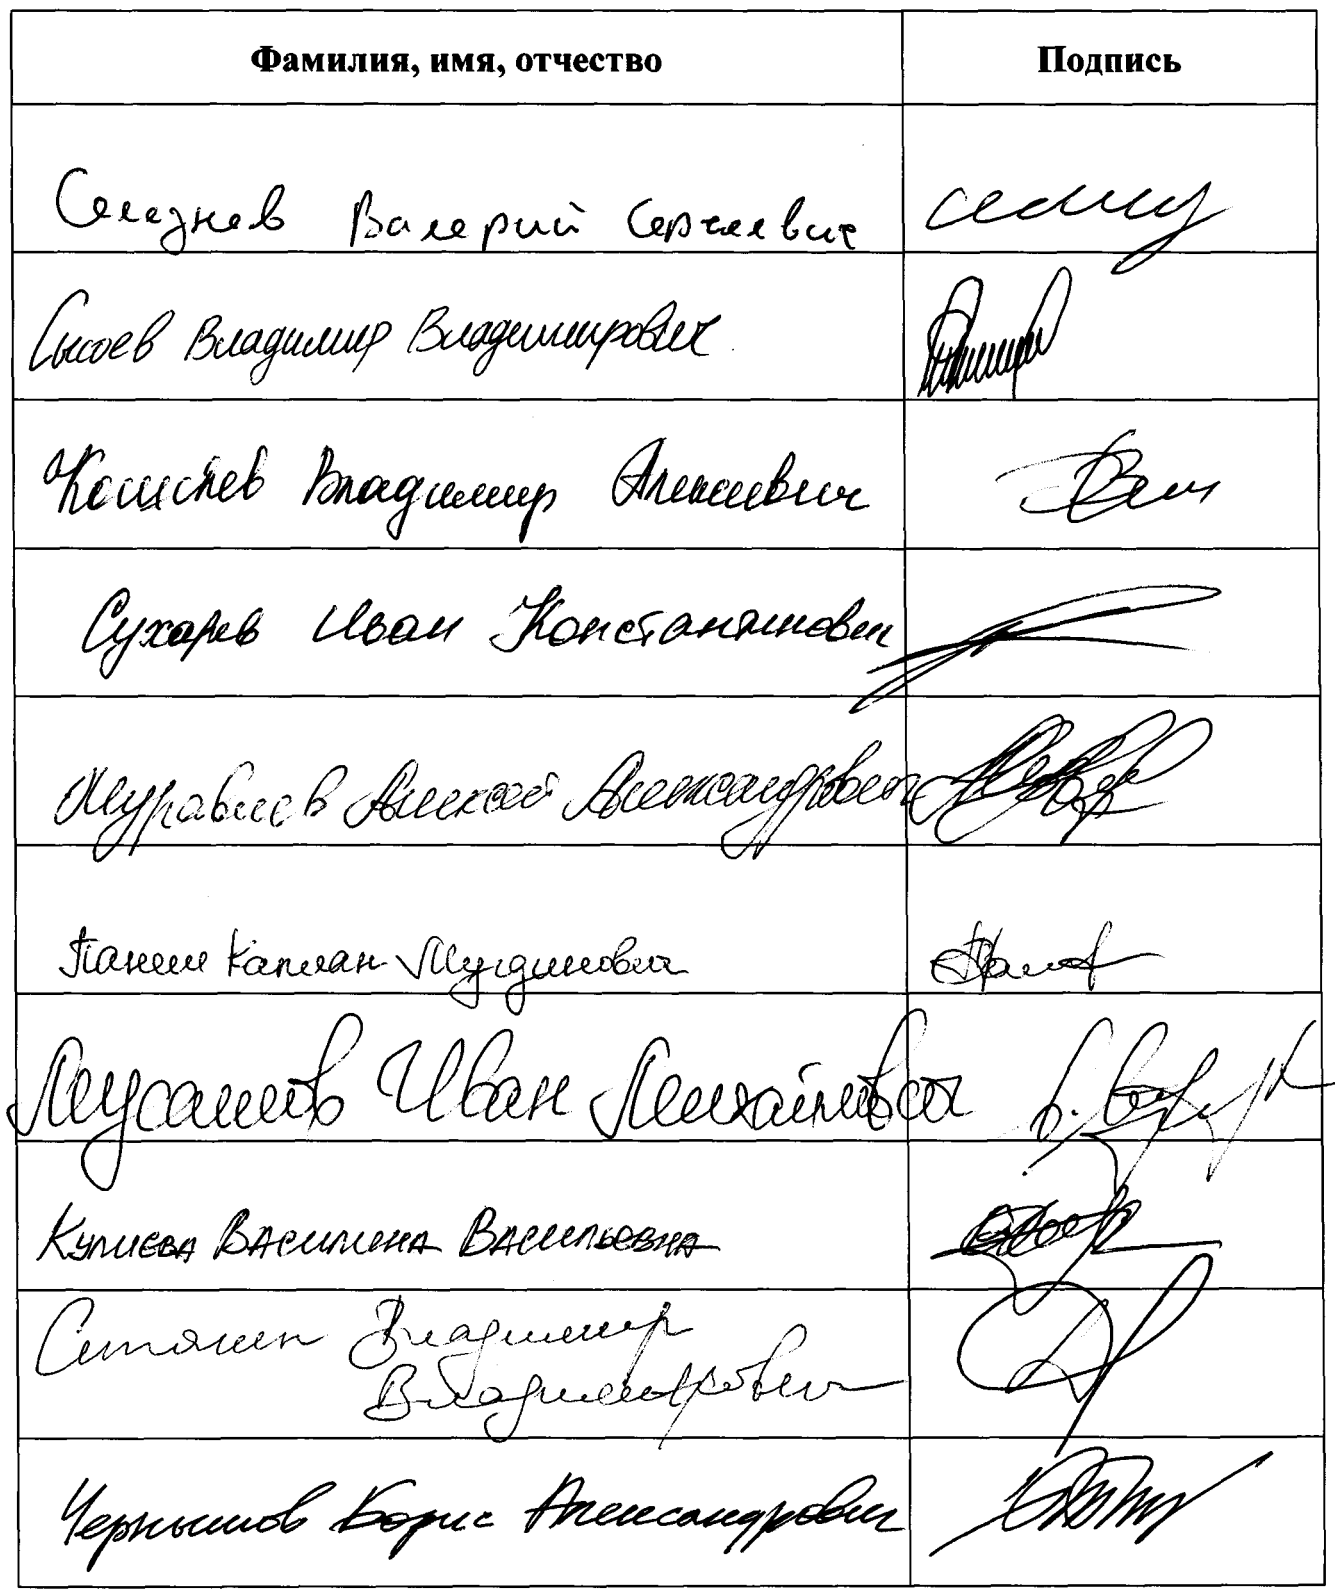 Фамилия, имя, отчество Подпись
Селезнев Валерий Сергеевич
Сысоев Владимир Владимирович
Владимир Алексеевич
Сухарев Иван Константинович
Муравьев Алексей Александрович
Панеш Каплан Мугдинович
Мусатов Иван Михайлович
Кулиева Василина Васильевна
Ситякин Владимир
Владимирович
Чернышов Борис Александрович